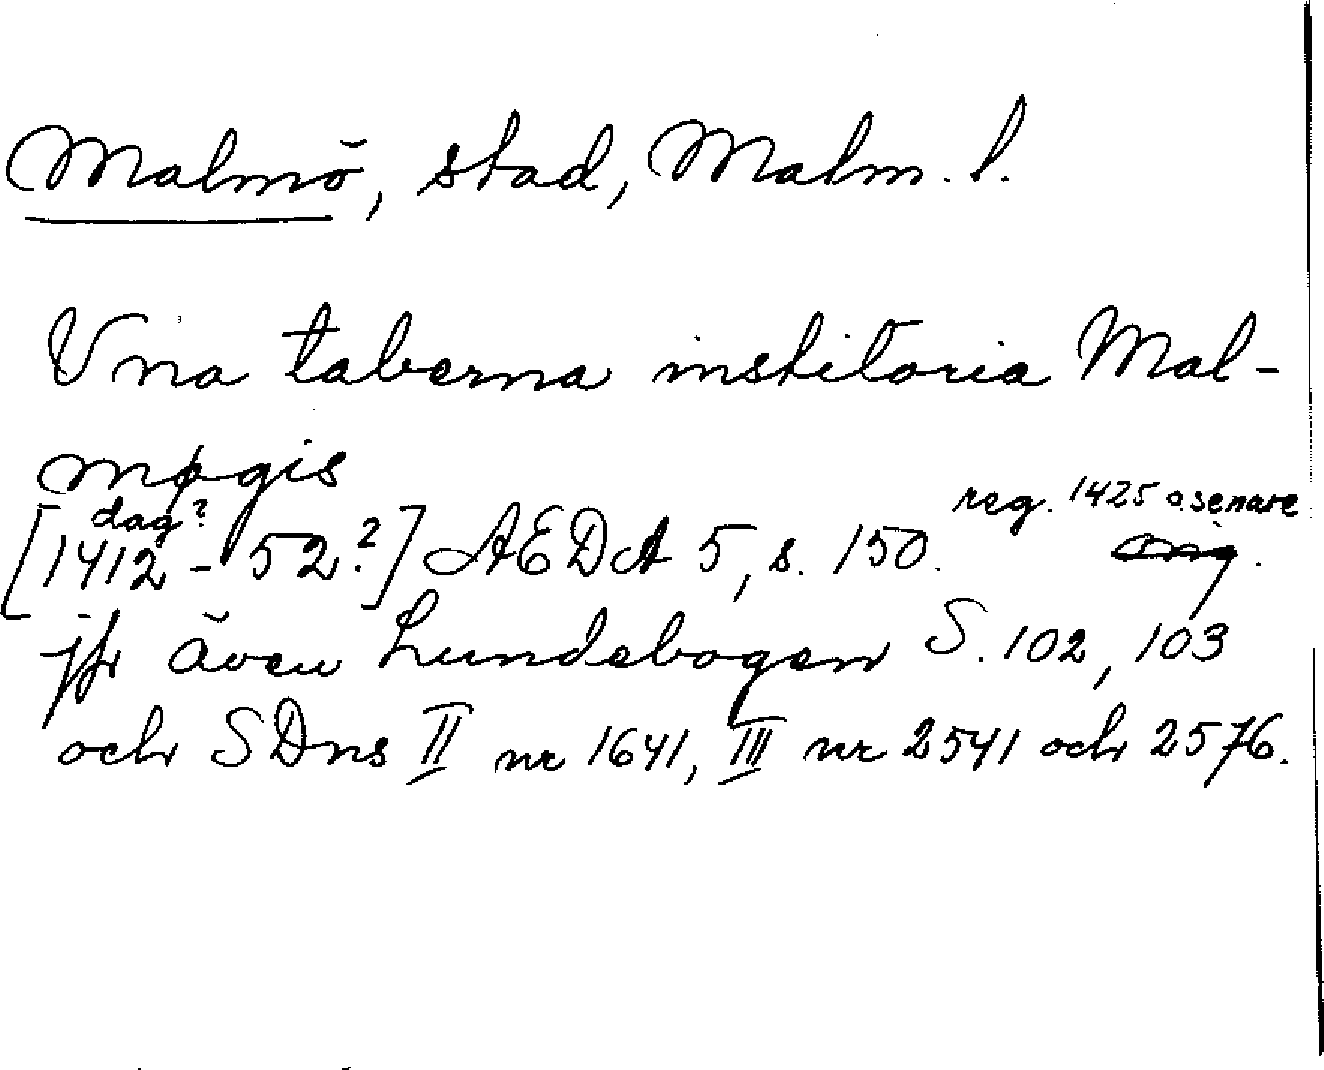 Malmö, stad, Malm. l.
Vna taberna institoria Mal-
møgis
dag? reg. 1425 o. senare
[1412 - 52?] AEDA 5, s. 150.
jfr även Lundebogen S. 102, 103
och SDns II nr 1641, III nr 2541 och 2576.